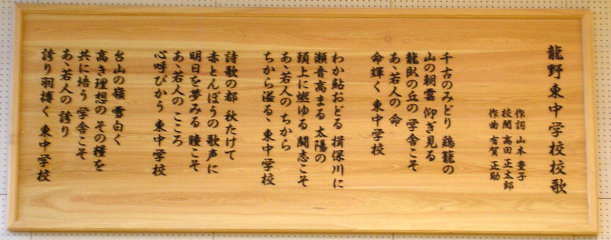 龍野東中学校校歌
作詞 山本 幸子
校閲 高田 正太郎
作曲 有賀 正助
千古のみどり 鶏籠の
山の朝雲 仰ぎ見る
龍臥の丘の 学舎こそ
あゝ若人の 命
命輝く 東中学校
わか鮎おどる 揖保川に
瀬音高まる 太陽の
頭上に燃ゆる 闘志こそ
あゝ若人の ちから
ちから溢る、 東中学校
詩歌の都 秋たけて
赤とんぼうの 歌声に
明日を夢みる 瞳こそ
あゝ若人の こころ
心呼びかう 東中学校
台山の嶺 雪白く
高き理想の その糧を
共に培う 学舎こそ
あゝ若人の 誇り
誇り羽搏く 東中学校